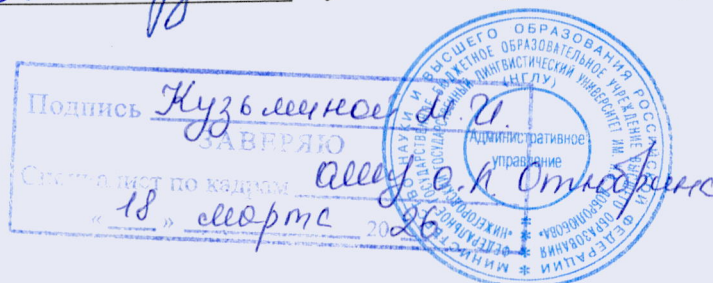 Подпись Кузьминой М.И.
ЗАВЕРЯЮ
Специалист по кадрам О.П.
« 18 » марта 2026
МИНИСТЕРСТВО НАУКИ И ВЫСШЕГО ОБРАЗОВАНИЯ РОССИЙСКОЙ ФЕДЕРАЦИИ
ФЕДЕРАЛЬНОЕ ГОСУДАРСТВЕННОЕ БЮДЖЕТНОЕ ОБРАЗОВАТЕЛЬНОЕ УЧРЕЖДЕНИЕ ВЫСШЕГО ОБРАЗОВАНИЯ
«НИЖЕГОРОДСКИЙ ГОСУДАРСТВЕННЫЙ ЛИНГВИСТИЧЕСКИЙ УНИВЕРСИТЕТ ИМ. Н.А. ДОБРОЛЮБОВА»
(НГЛУ)
Административное
управление